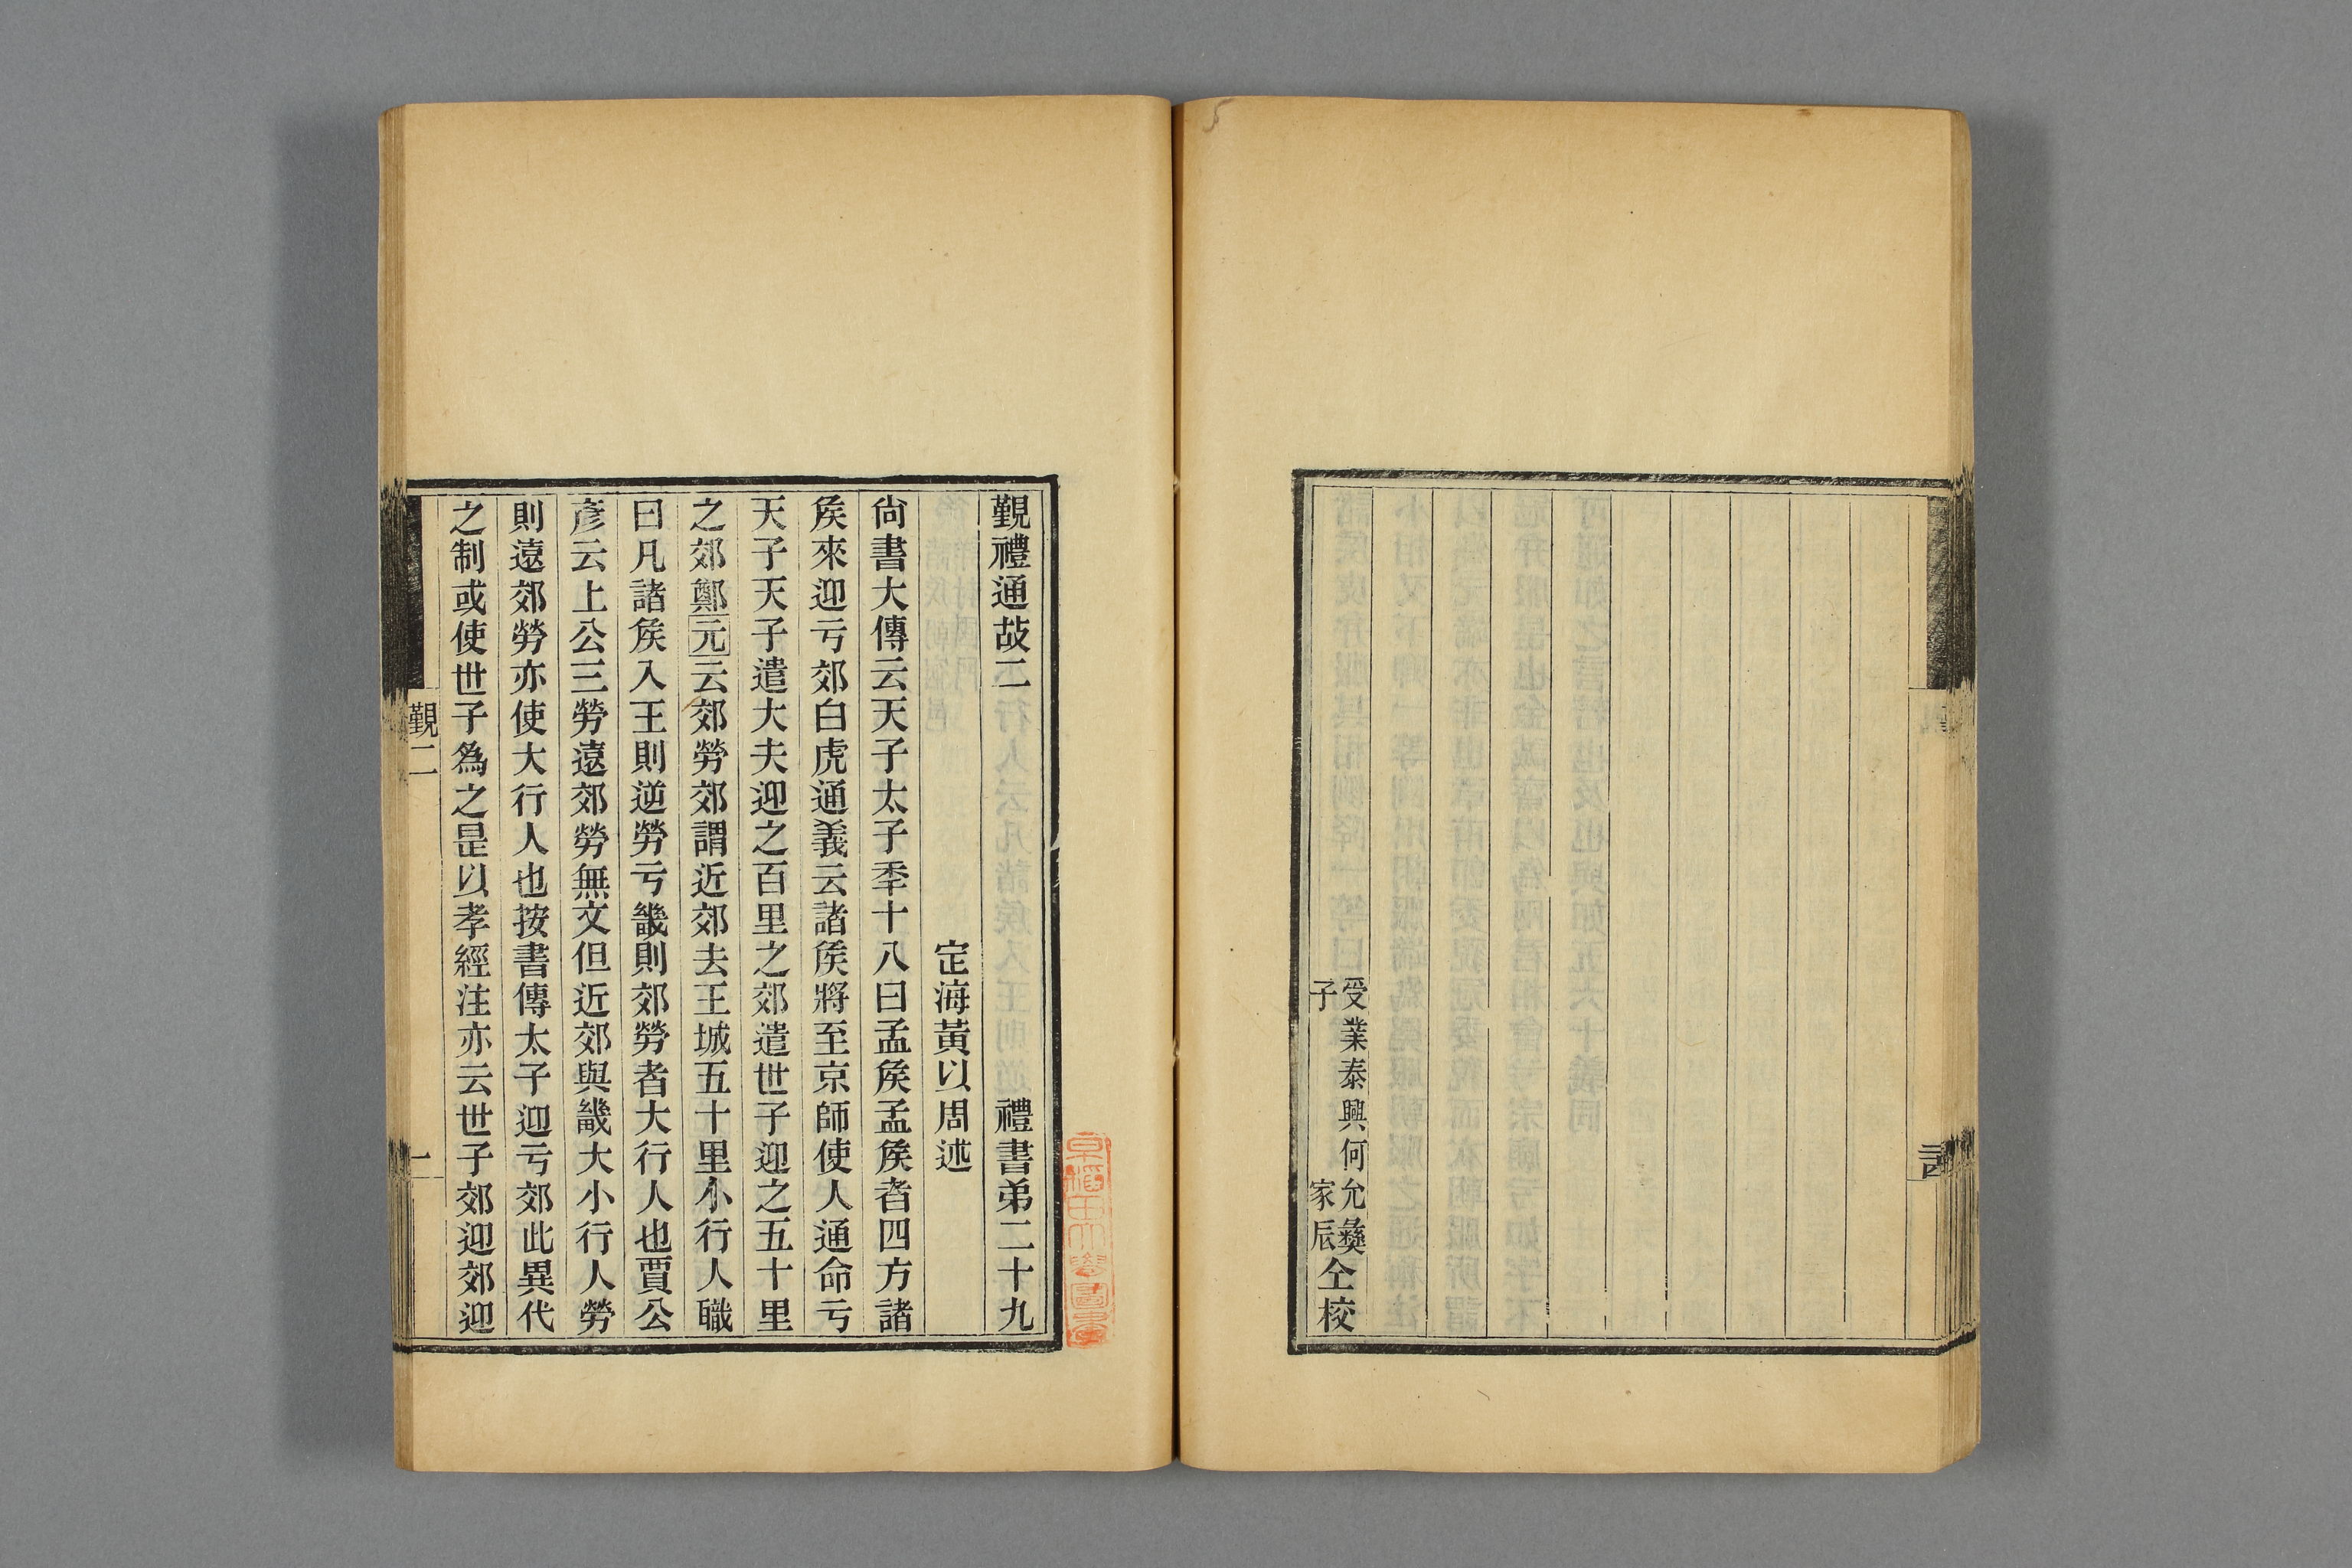 受業泰興何允彝
子家辰
仝校
覲禮通故二禮書弟二十九
定海黃以周述
尙書大傳云天子太子秊十八曰孟矦孟矦者四方諸
矦來迎亏郊白虎通義云諸矦將至京師使人通命亏
天子天子遣大夫迎之百里之郊遣世子迎之五十里
之郊鄭元云郊勞郊謂近郊去王城五十里小行人職
曰凡諸矦入王則逆勞亏畿則郊勞者大行人也賈公
彥云上公三勞遠郊勞無文但近郊與畿大小行人勞
則遠郊勞亦使大行人也按書傳太子迎亏郊此異代
之制或使世子爲之是以孝經注亦云世子郊迎郊迎
覲二
一
早稻田大學圖書